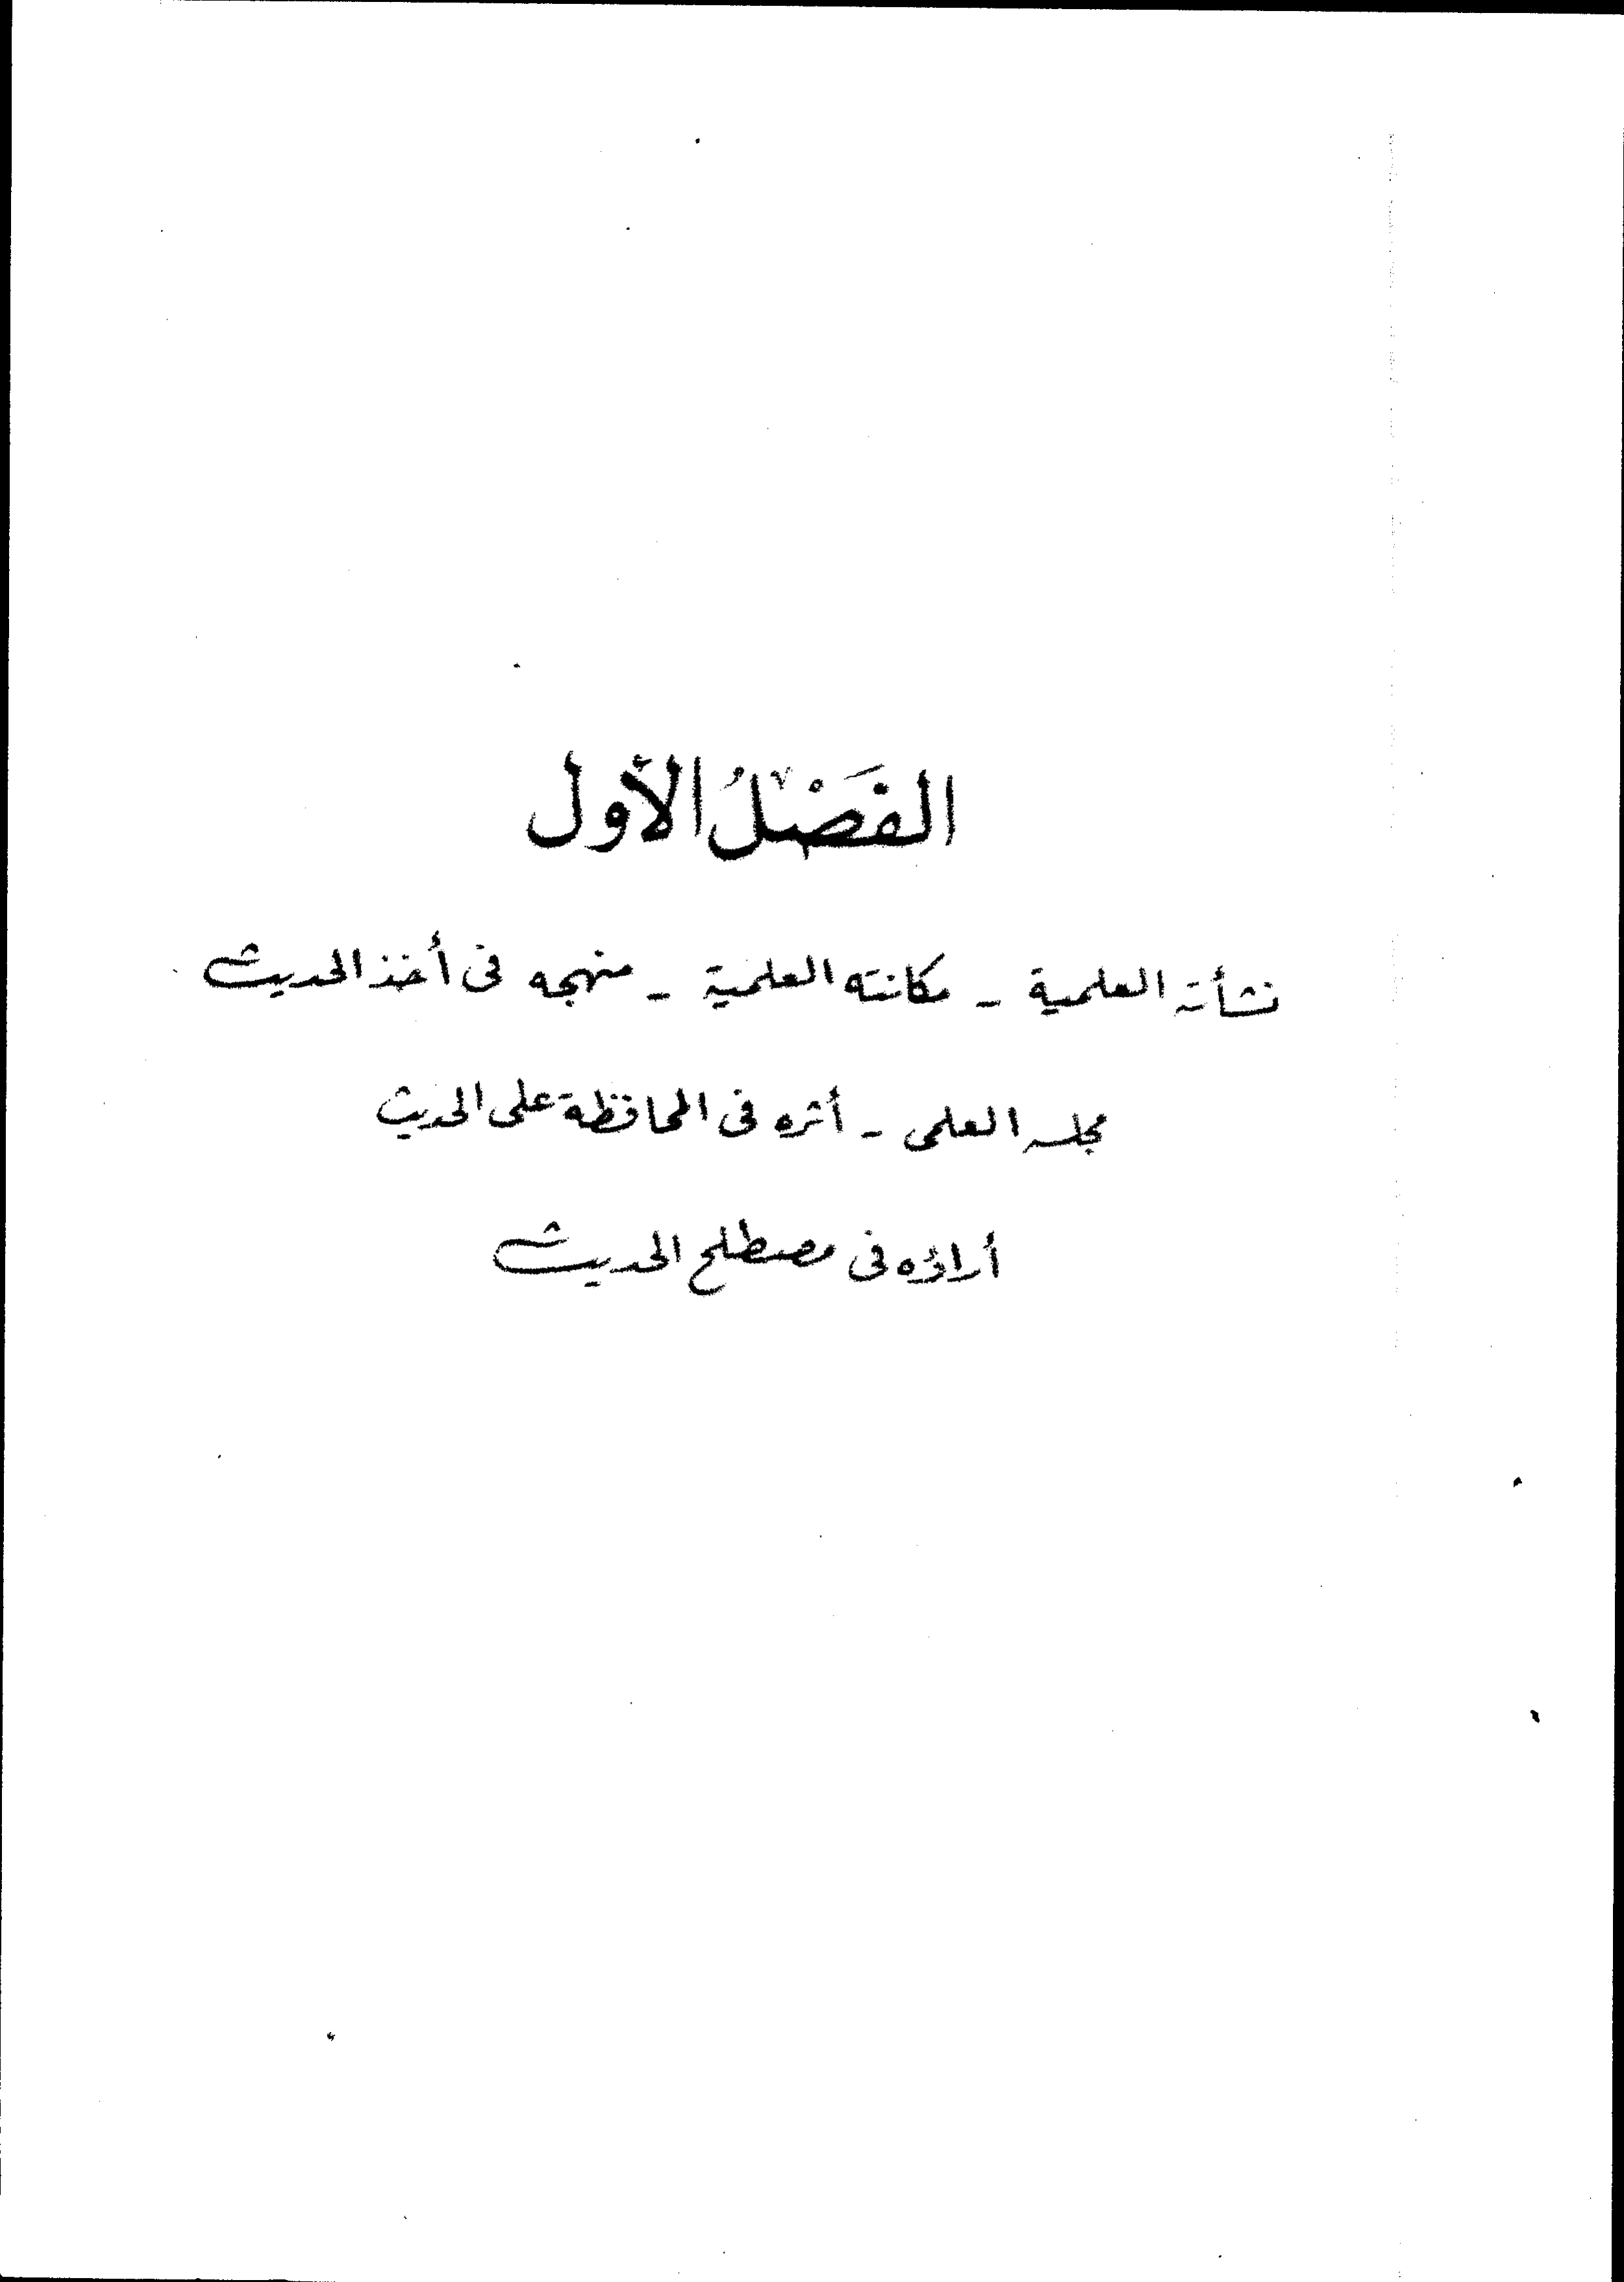 الفَصْلُ الأول
نشأته العلمية - مكانته العلمية - منهجه فى أخذ الحديث
مجلسه العلمى - أثره فى المحافظة على الحديث
أراؤه فى مصطلح الحديث